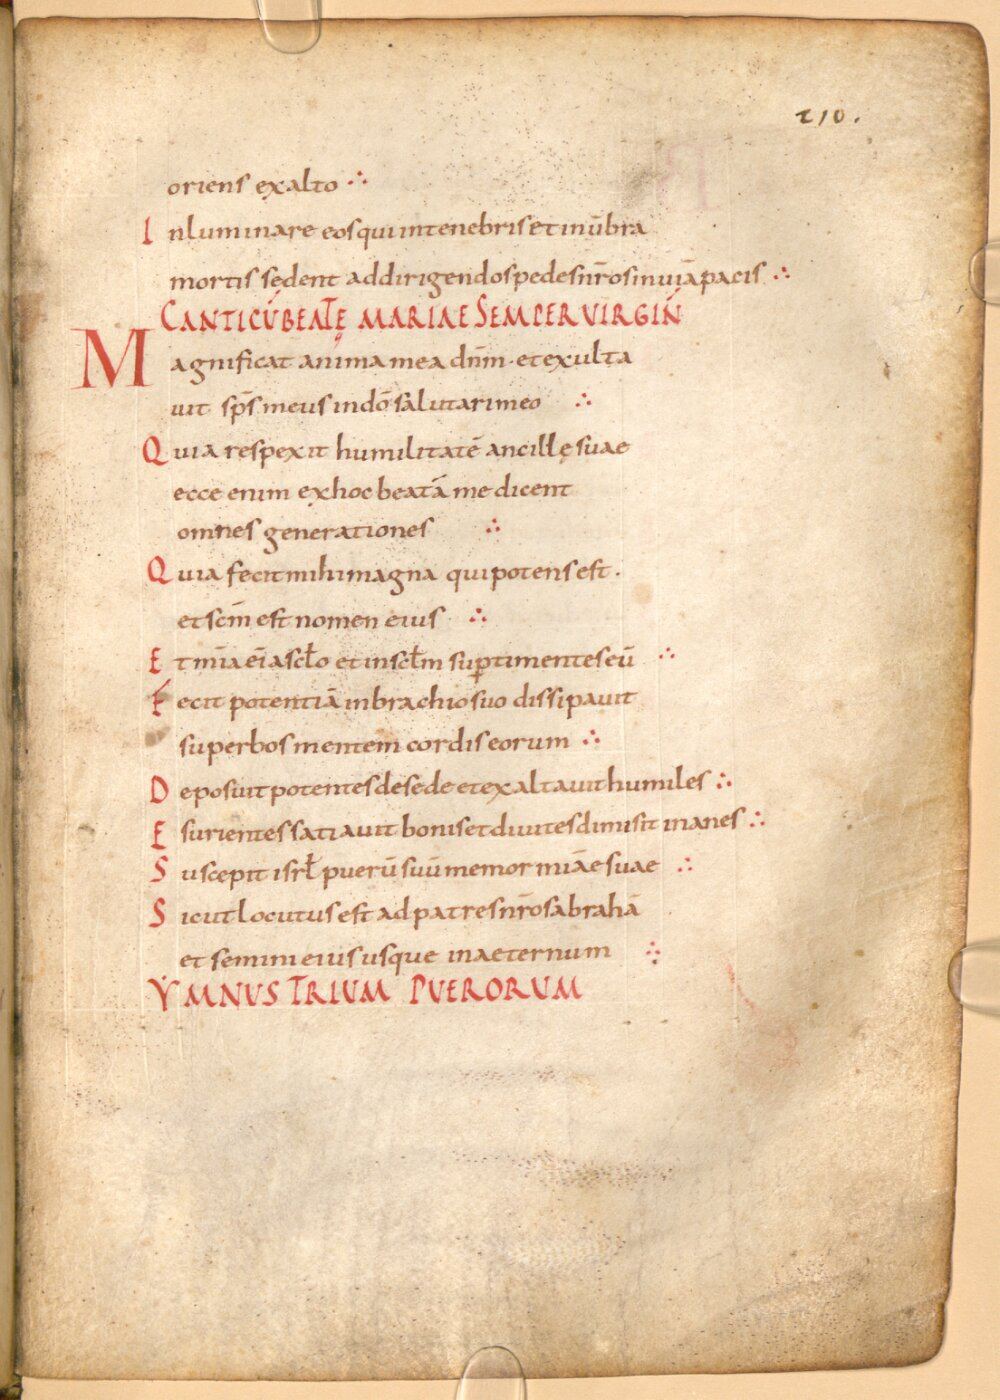 210.
oriens exalto ∴
Inluminare eos qui intenebris et inūbra
mortis sedent addirigendos pedes nr̄os inuiā pacis ∴
CANTICŪ BEATĘ MARIAE SEMPER VIRGIN̄
Magnificat anima mea dn̄m · et exulta
uit sp̄s meus indō salutari meo ∴
Quia respexit humilitatē ancillę suae
ecce enim exhoc beatā me dicent
omnes generationes ∴
Quia fecit mihi magna qui potens est ·
et scm̄ est nomen eius ∴
Et mīa eī a scło et in scłm sup timentes eū ∴
Fecit potentiā in brachio suo dissipauit
superbos mentem cordis eorum ∴
Deposuit potentes desede et exaltauit humiles ∴
Esurientes satiauit bonis et diuites dimisit inanes ∴
Suscepit isrł puerū suū memor mīae suae ∴
Sicut locutus est ad patres nr̄os abrahā
et semini eius usque inaeternum ∴
YMNUS TRIUM PUERORUM